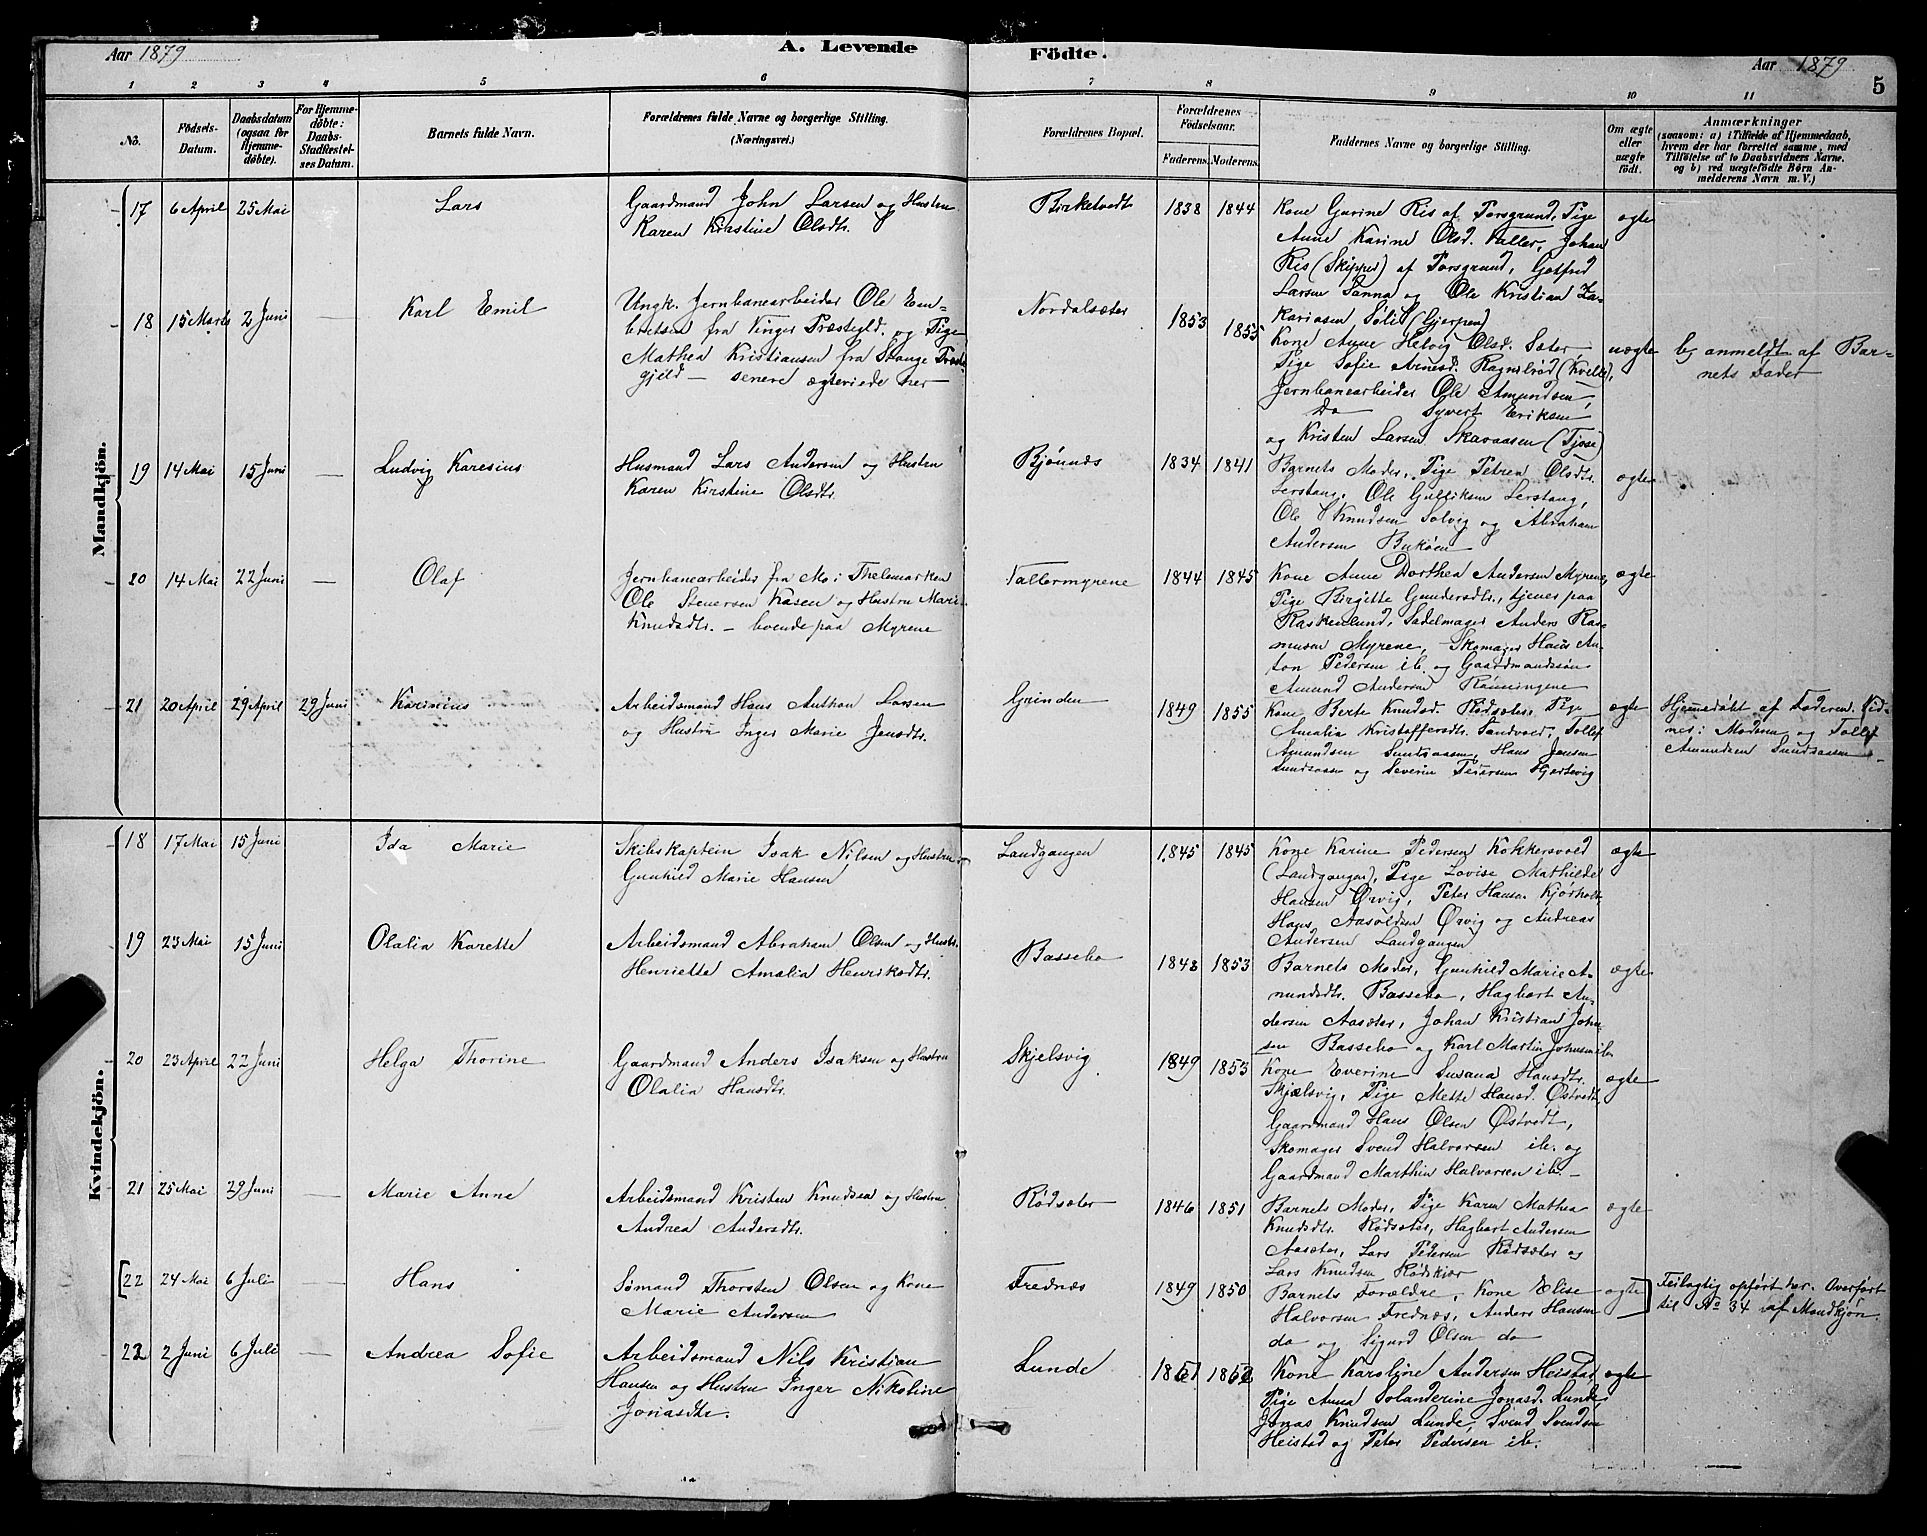 Aar 1879
A. Levende
Födte.
Aar 1879
5
1 2 3 4 5 6 7 8 9 10 11
No.
Födsels-
Datum.
Daabsdatum
(ogsaa for
Hjemme-
döbte).
For Hjemme-
döbte:
Daabs-
Stadfæstel-
ses Datum.
Barnets fulde Navn.
Forældrenes fulde Navne og borgerlige Stilling.
(Næringsvei.)
Forældrenes Bopæl.
Forældrenes
Födselsaar.
Faderens. Moderens.
Faddernes Navne og borgerlige Stilling.
Om ægte
eller
uægte
födt.
Anmærkninger
(saasom: a) i Tilfælde af Hjemmedaab,
hvem der har forrettet samme, med
Tilföielse af to Daabsvidners Navne.
og b) ved uægtefödte Börn An-
melderens Navn m. V.)
Mandkjön.
17 6 April 25 Mai Lars
Gaardmand John Larsen og Hustru
Karen Kirstine Olsdtr.
Birketvedt 1838 1844
Kone Gurine Ris af Porsgrund, Pige
Anne Karine Olsd. Valler, Johan
Ris (Skipper) af Porsgrund, Gotfred
Larsen Sanna og Ole Kristian Za-
kariasen Solli (Gjerpen)
ægte
18 15 Marts 2 Juni — Karl Emil
Ungk. Jernbanearbeider Ole Em-
bretsen fra Vinger Præstegld. og Pige
Mathea Kristiansen fra Stange Præste-
gjeld — senere ægteviede her —
Nordalsæter 1853 1855
Kone Anne Helvig Olsd. Sæter
Pige Sofie Arnesd. Ragnilrød (Kvelle),
Jernbanearbeider Ole Amundsen,
Do Syvert Eriksen
og Kristen Larsen Skavaasen (Tjose)
uægte
b, anmeldt af Bar-
nets Fader
19 14 Mai 15 Juni — Ludvig Karesius
Husmand Lars Andersen og Hustru
Karen Kirstine Olsdtr.
Bjønnes 1834 1841
Barnets Moder, Pige Petrea Olsdtr.
Lerstang, Ole Gulliksen Lerstang,
Ole Knudsen Solvig og Abraham
Andersen Bukøen
ægte
20 14 Mai 22 Juni — Olaf
Jernbanearbeider fra Mo i Thelemarken
Ole Stenersen Kasen og Hustru Marie
Knudsdtr. — boende paa Myrene
Vallermyrene 1844 1845
Kone Anne Dorthea Andersen Myrene,
Pige Birgitte Gundersdtr., tjener paa
Raskenlund, Sadelmager Anders Ras-
musen Myrene, Skomager Hans An-
ton Pedersen ib. og Gaardmandssøn
Amund Andersen Rønningene
ægte
21 20 April 29 April 29 Juni Karinius
Arbeidsmand Hans Anthon Larsen
og Hustru Inger Marie Jensdtr.
Grinden 1849 1855
Kone Berte Knudsd. Rødsæter, Pige
Amalia Kristoffersdtr. Sandvold, Tollef
Amundsen Sundsaasen, Hans Jensen
Sundsaasen og Severin Pedersen Hjertevig
ægte
Hjemmedøbt af Faderen. Vid-
ner: Moderen og Tollef
Amundsen Sundsaasen
Kvindekjön.
18 17 Mai 15 Juni Ida Marie
Skibskaptein Isak Nilsen og Hustru
Gunhild Marie Hansen
Landgangen 1845 1845
Kone Karine Pedersen Kokkersvold
(Landgangen), Pige Lovise Mathilde
Hansen Ørvig, Peter Hansen Kjørholt,
Hans Aasoldsen Ørvig og Andreas
Andersen Landgangen
ægte
19 23 Mai 15 Juni Olalia Karette
Arbeidsmand Abraham Olsen og Hustr.
Henriette Amalia Henriksdtr.
Bassebo 1848 1853
Barnets Moder, Gunhild Marie A-
mundsdtr. Bassebo, Hagbart An-
dersen Aasæter, Johan Kristian John-
sen Bassebo og Karl Martin Johnsen ib.
ægte
20 23 April 22 Juni Helga Thorine
Gaardmand Anders Isaksen og Hustru
Olalia Hansdtr.
Skjelsvig 1849 1853
Kone Everine Susana Hansdtr.
Skjælsvig, Pige Mette Hansd. Østvedt,
Gaardmand Hans Olsen Østvedt,
Skomager Svend Halvorsen ib. og
Gaardmand Marthin Halvorsen ib. —
ægte
21 25 Mai 29 Juni — Marie Anne
Arbeidsmand Kristen Knudsen og Hustru
Andrea Andersdtr.
Rødsæter 1846 1851
Barnets Moder, Pige Karen Mathea
Knudsdtr. Rødsæter, Hagbart Andersen
Aasæter, Lars Pedersen Rødsæter og
Lars Knudsen Rødskjær
ægte
[22 24 Mai 6 Juli — Hans
Sømand Thorsten Olsen og Kone
Marie Andersen
Frednæs 1849 1850
Barnets Forældre, Kone Elise
Halvorsen Frednæs, Anders Hansen
do og Sigurd Olsen do
ægte]
Feilagtig opført her. Overført
til No 34 af Mandkjøn.
22 2 Juni 6 Juli — Andrea Sofie
Arbeidsmand Nils Kristian
Hansen og Hustru Inger Nikoline
Jonasdtr.
Lunde 1851 1852
Kone Karoline Andersen Heistad,
Pige Anna Solanderine Jonasd. Lunde,
Jonas Knudsen Lunde, Svend Svendsen
Heistad og Peter Pedersen ib.
ægte